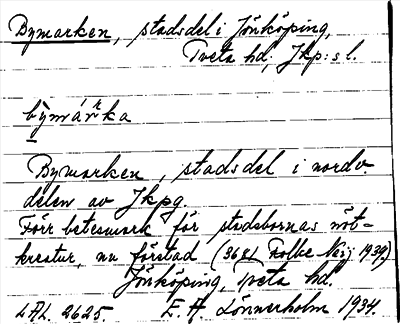 Bymarken, stadsdel i Jönköping,
Tveta hd; Jkp:s l.
bỳmárka
Bymarken, stadsdel i nordv.
delen av Jkpg.
Förr betesmark för stadsbornas nöt-
kreatur, nu förstad (3681 Folke Neij 1939.)
Jönköping, Tveta hd.
LAL 2625. E. H. Lönnerholm 1934.